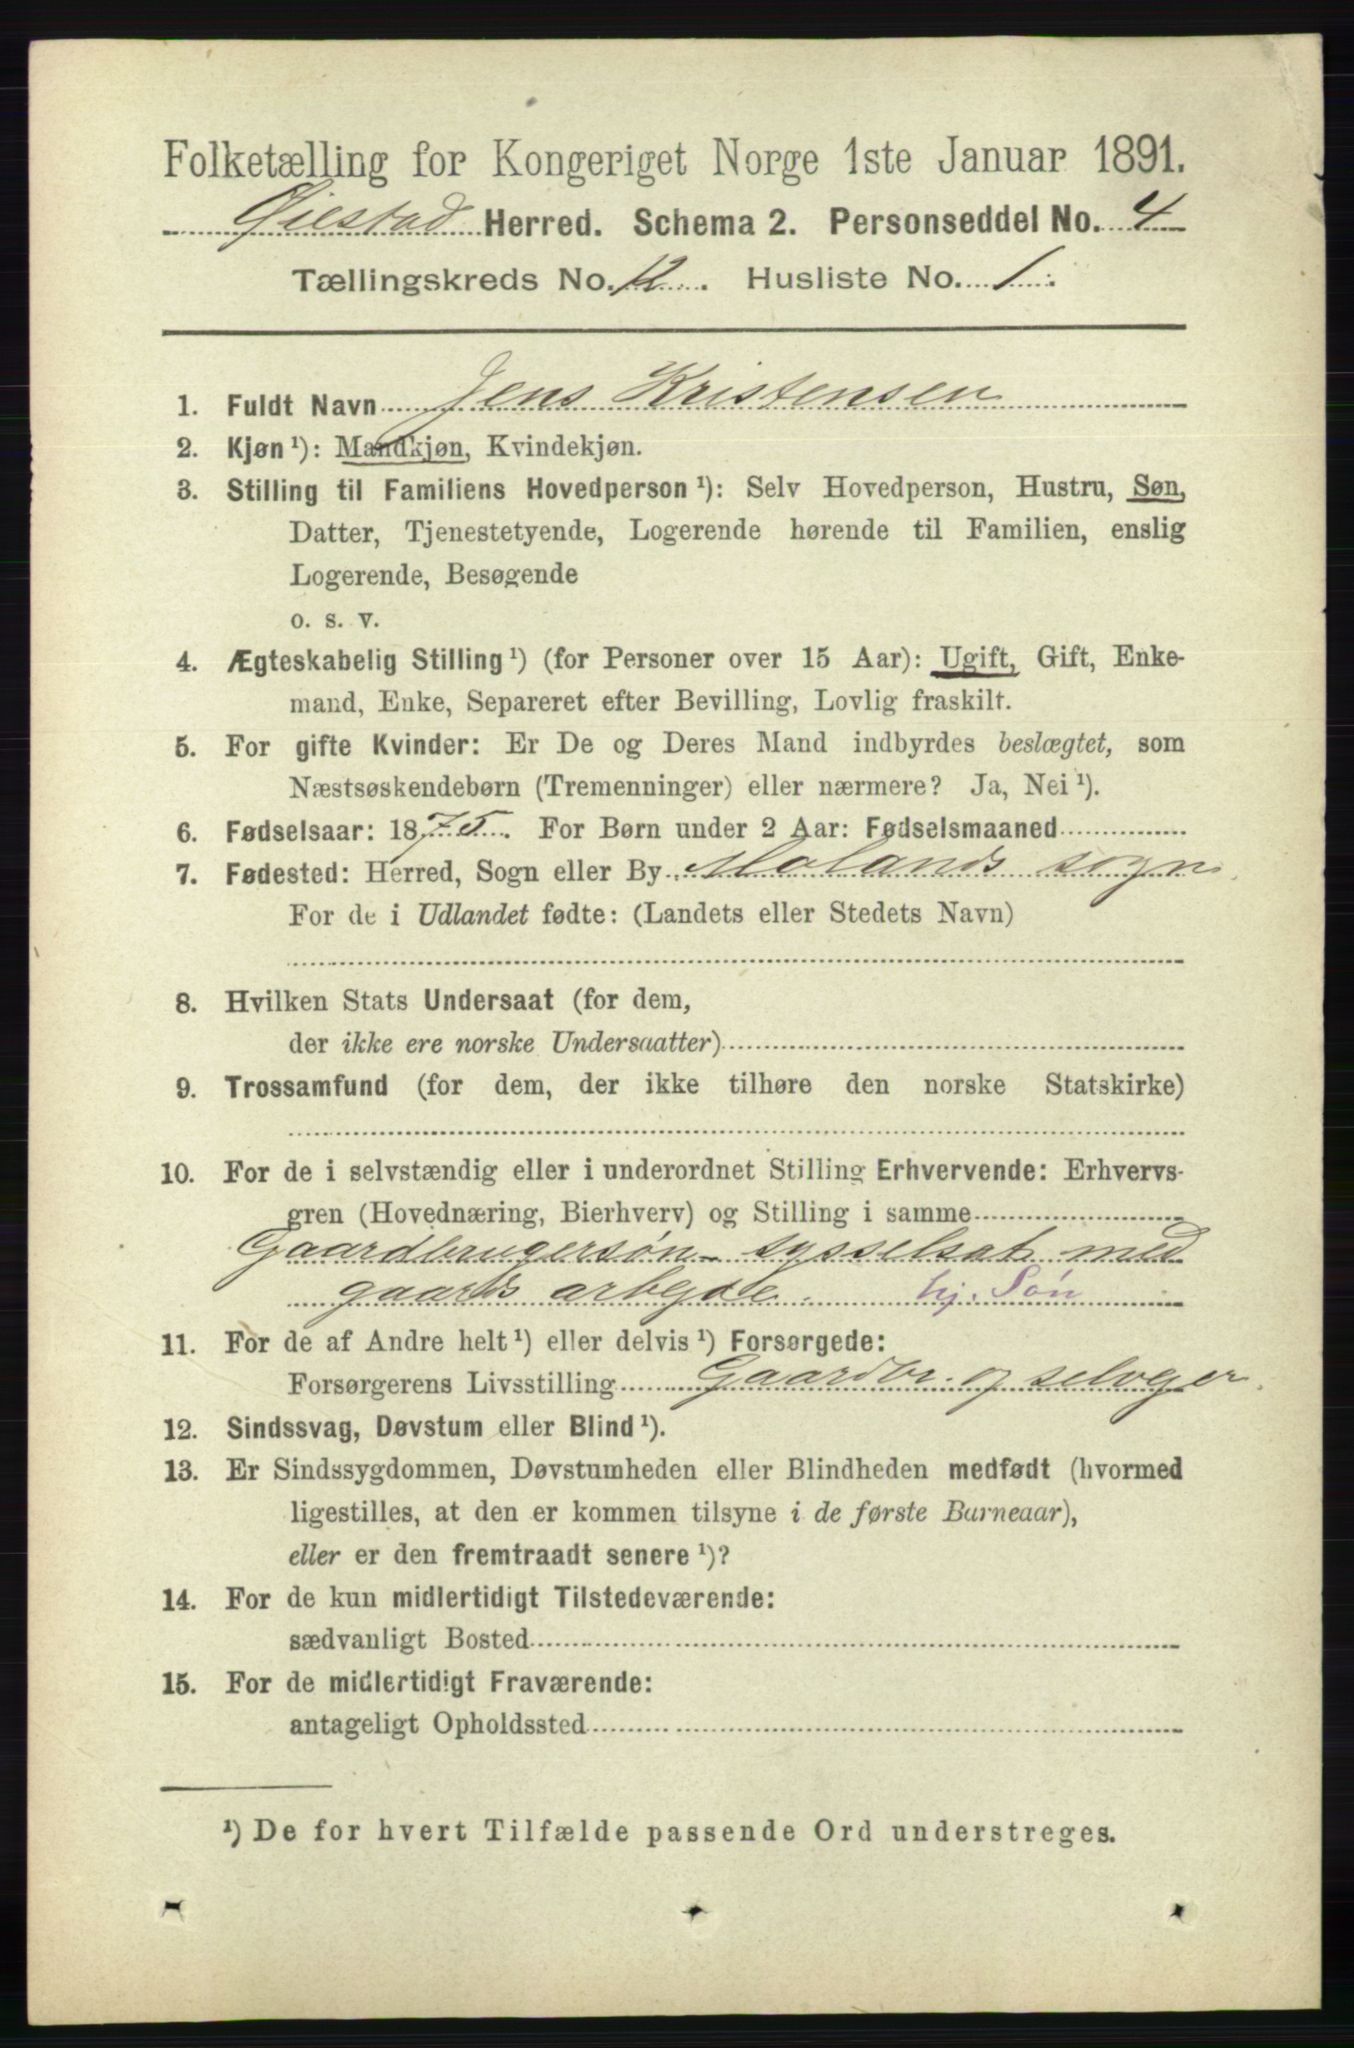 Folketælling for Kongeriget Norge 1ste Januar 1891.
Øiestad Herred. Schema 2. Personseddel No. 4
Tællingskreds No. 12. Husliste No. 1.
1. Fuldt Navn Jens Kristensen
2. Kjøn ¹): Mandkjøn, Kvindekjøn.
3. Stilling til Familiens Hovedperson ¹): Selv Hovedperson, Hustru, Søn,
Datter, Tjenestetyende, Logerende hørende til Familien, enslig
Logerende, Besøgende
o. s. v.
4. Ægteskabelig Stilling ¹) (for Personer over 15 Aar): Ugift, Gift, Enke-
mand, Enke, Separeret efter Bevilling, Lovlig fraskilt.
5. For gifte Kvinder: Er De og Deres Mand indbyrdes beslægtet, som
Næstsøskendebørn (Tremenninger) eller nærmere? Ja, Nei ¹).
6. Fødselsaar: 1875. For Børn under 2 Aar: Fødselsmaaned
7. Fødested: Herred, Sogn eller By Molands sogn.
For de i Udlandet fødte: (Landets eller Stedets Navn)
8. Hvilken Stats Undersaat (for dem,
der ikke ere norske Undersaatter)
9. Trossamfund (for dem, der ikke tilhøre den norske Statskirke)
10. For de i selvstændig eller i underordnet Stilling Erhvervende: Erhvervs-
gren (Hovednæring, Bierhverv) og Stilling i samme
Gaardbrugersøn - sysselsat med
gaards arbejde. hj. Søn
11. For de af Andre helt ¹) eller delvis ¹) Forsørgede:
Forsørgerens Livsstilling Gaardbr. og selveger.
12. Sindssvag, Døvstum eller Blind ¹).
13. Er Sindssygdommen, Døvstumheden eller Blindheden medfødt (hvormed
ligestilles, at den er kommen tilsyne i de første Barneaar),
eller er den fremtraadt senere ¹)?
14. For de kun midlertidigt Tilstedeværende:
sædvanligt Bosted
15. For de midlertidigt Fraværende:
antageligt Opholdssted
¹) De for hvert Tilfælde passende Ord understreges.